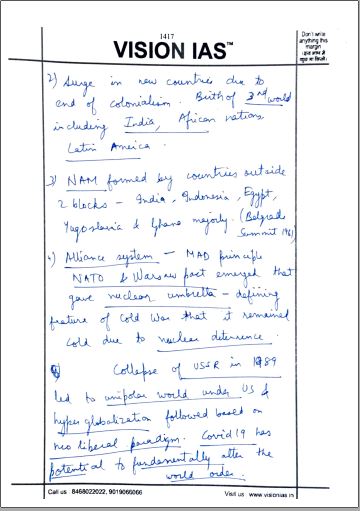 1417
VISION IAS™
Don't write
anything this
margin
2) Surge in new countries due to
end of colonialism. Birth of 3rd world
including India, African nations,
Latin America.
3) NAM formed by countries outside
2 blocks - India, Indonesia, Egypt,
Yugoslavia & Ghana majorly. (Belgrade
Summit 1961)
4) Alliance system - MAD principle
NATO & Warsaw pact emerged that
gave nuclear umbrella - defining
feature of Cold War that it remained
cold due to nuclear deterrence.
Collapse of USSR in 1989
led to unipolar world under US &
hyper globalization followed based on
neo liberal paradigm. Covid 19 has
potential to fundamentally alter the
world order.
Call us : 8468022022, 9019066066
Visit us : www.visionias.in